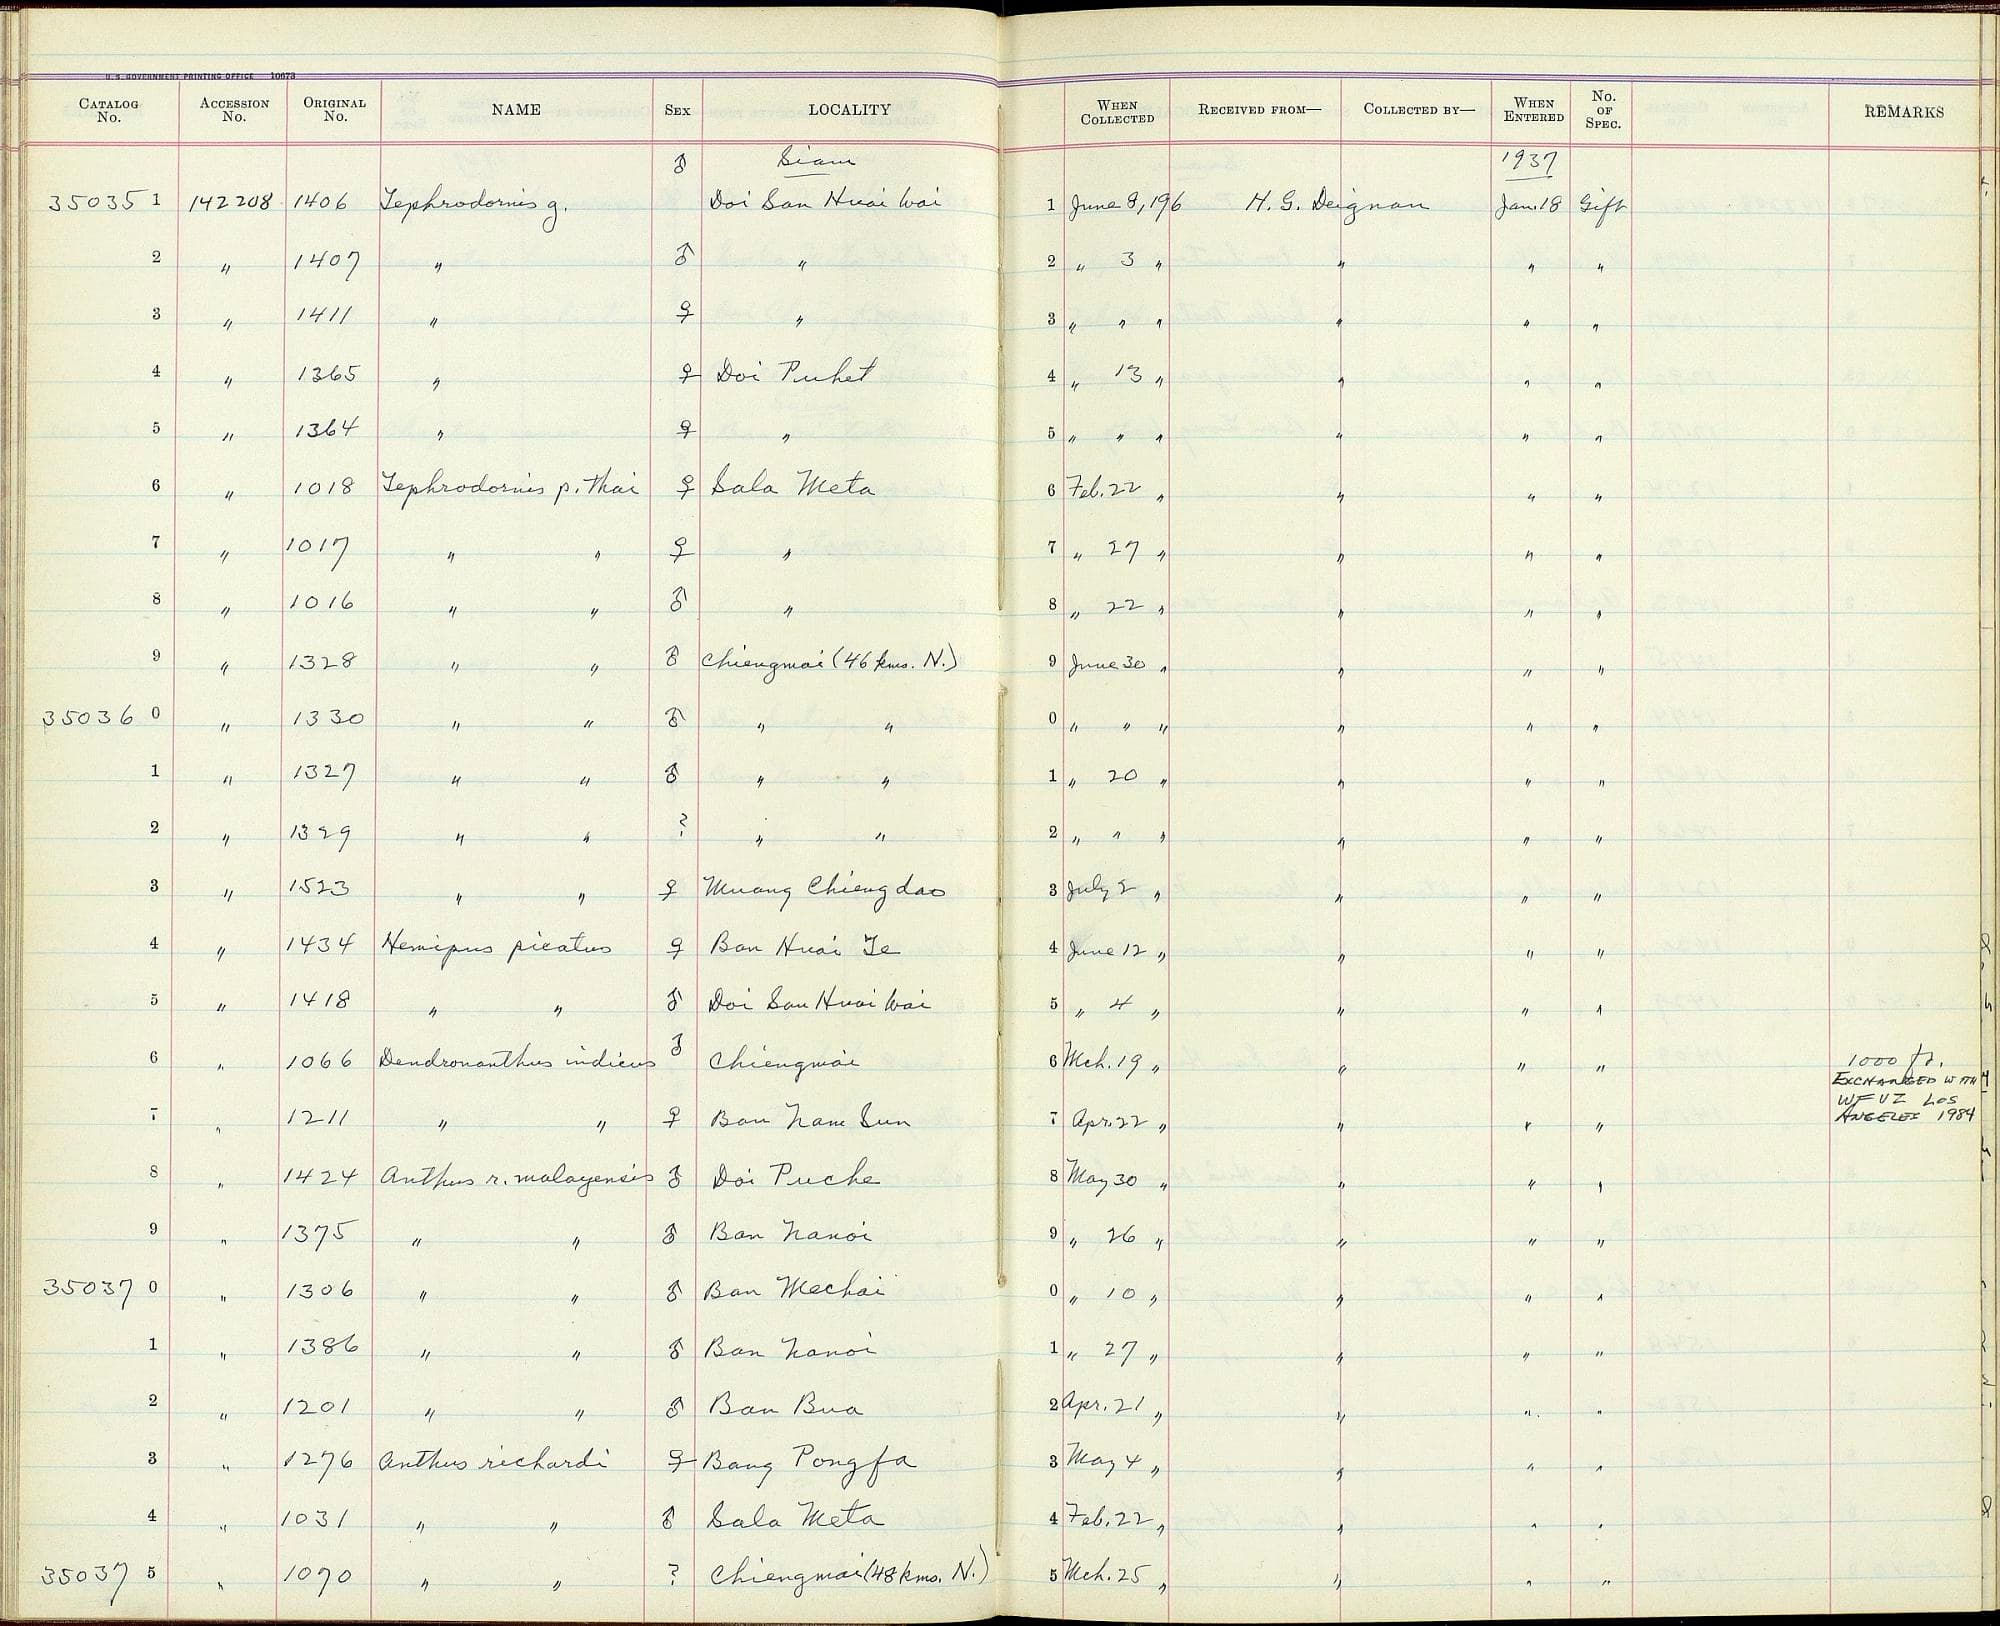 U.S. GOVERNMENT PRINTING OFFICE 10673
CATALOG No. ACCESSION No. ORIGINAL No. NAME SEX LOCALITY WHEN COLLECTED RECEIVED FROM— COLLECTED BY— WHEN ENTERED No. OF SPEC. REMARKS
♂ Siam 1937
35035 1 142208 1406 Tephrodornis g. Doi San Huai Wai 1 June 8, 196 H. G. Deignan Jan. 18 Gift
2 " 1407 " ♂ " 2 " 3 " " " "
3 " 1411 " ♀ " 3 " " " " " "
4 " 1365 " ♀ Doi Puhet 4 " 13 " " " "
5 " 1364 " ♀ " 5 " " " " " "
6 " 1018 Tephrodornis p. thai ♀ Sala Meta 6 Feb. 22 " " " "
7 " 1017 " " ♀ " 7 " 27 " " " "
8 " 1016 " " ♂ " 8 " 22 " " " "
9 " 1328 " " ♂ Chiengmai (46 kms. N.) 9 June 30 " " " "
35036 0 " 1330 " " ♂ " " 0 " " " " " "
1 " 1327 " " ♂ " " 1 " 20 " " " "
2 " 1329 " " ? " " 2 " " " " " "
3 " 1523 " " ♀ Muang Chieng dao 3 July 2 " " " "
4 " 1434 Hemipus picatus ♀ Ban Huai Te 4 June 12 " " " "
5 " 1418 " " ♂ Doi San Huai Wai 5 " 4 " " " "
6 " 1066 Dendronanthus indicus ♂ Chiengmai 6 Mch. 19 " " " " 1000 ft.
EXCHANGED WITH
WFVZ LOS
ANGELES 1984
7 " 1211 " " ♀ Ban Nam Sun 7 Apr. 22 " " " "
8 " 1424 Anthus r. malayensis ♂ Doi Puche 8 May 30 " " " "
9 " 1375 " " ♂ Ban Nanoi 9 " 26 " " " "
35037 0 " 1306 " " ♂ Ban Mechai 0 " 10 " " " "
1 " 1386 " " ♂ Ban Nanoi 1 " 27 " " " "
2 " 1201 " " ♂ Ban Bua 2 Apr. 21 " " " "
3 " 1276 Anthus richardi ♀ Bang Pongfa 3 May 4 " " " "
4 " 1031 " " ♂ Sala Meta 4 Feb. 22 " " " "
35037 5 " 1090 " " ? Chiengmai (48 kms. N.) 5 Mch. 25 " " " "